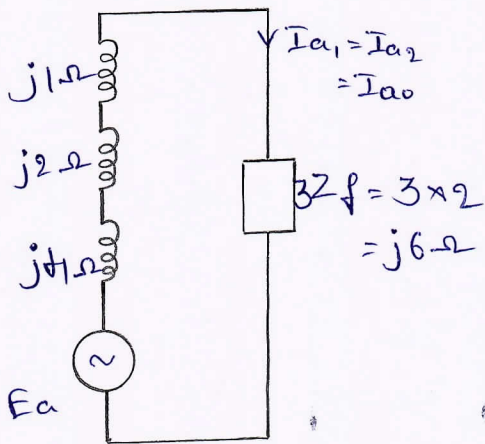 j1Ω
j2Ω
Ea
Ia₁ = Ia₂
= Ia₀
3Zf = 3×2
= j6Ω